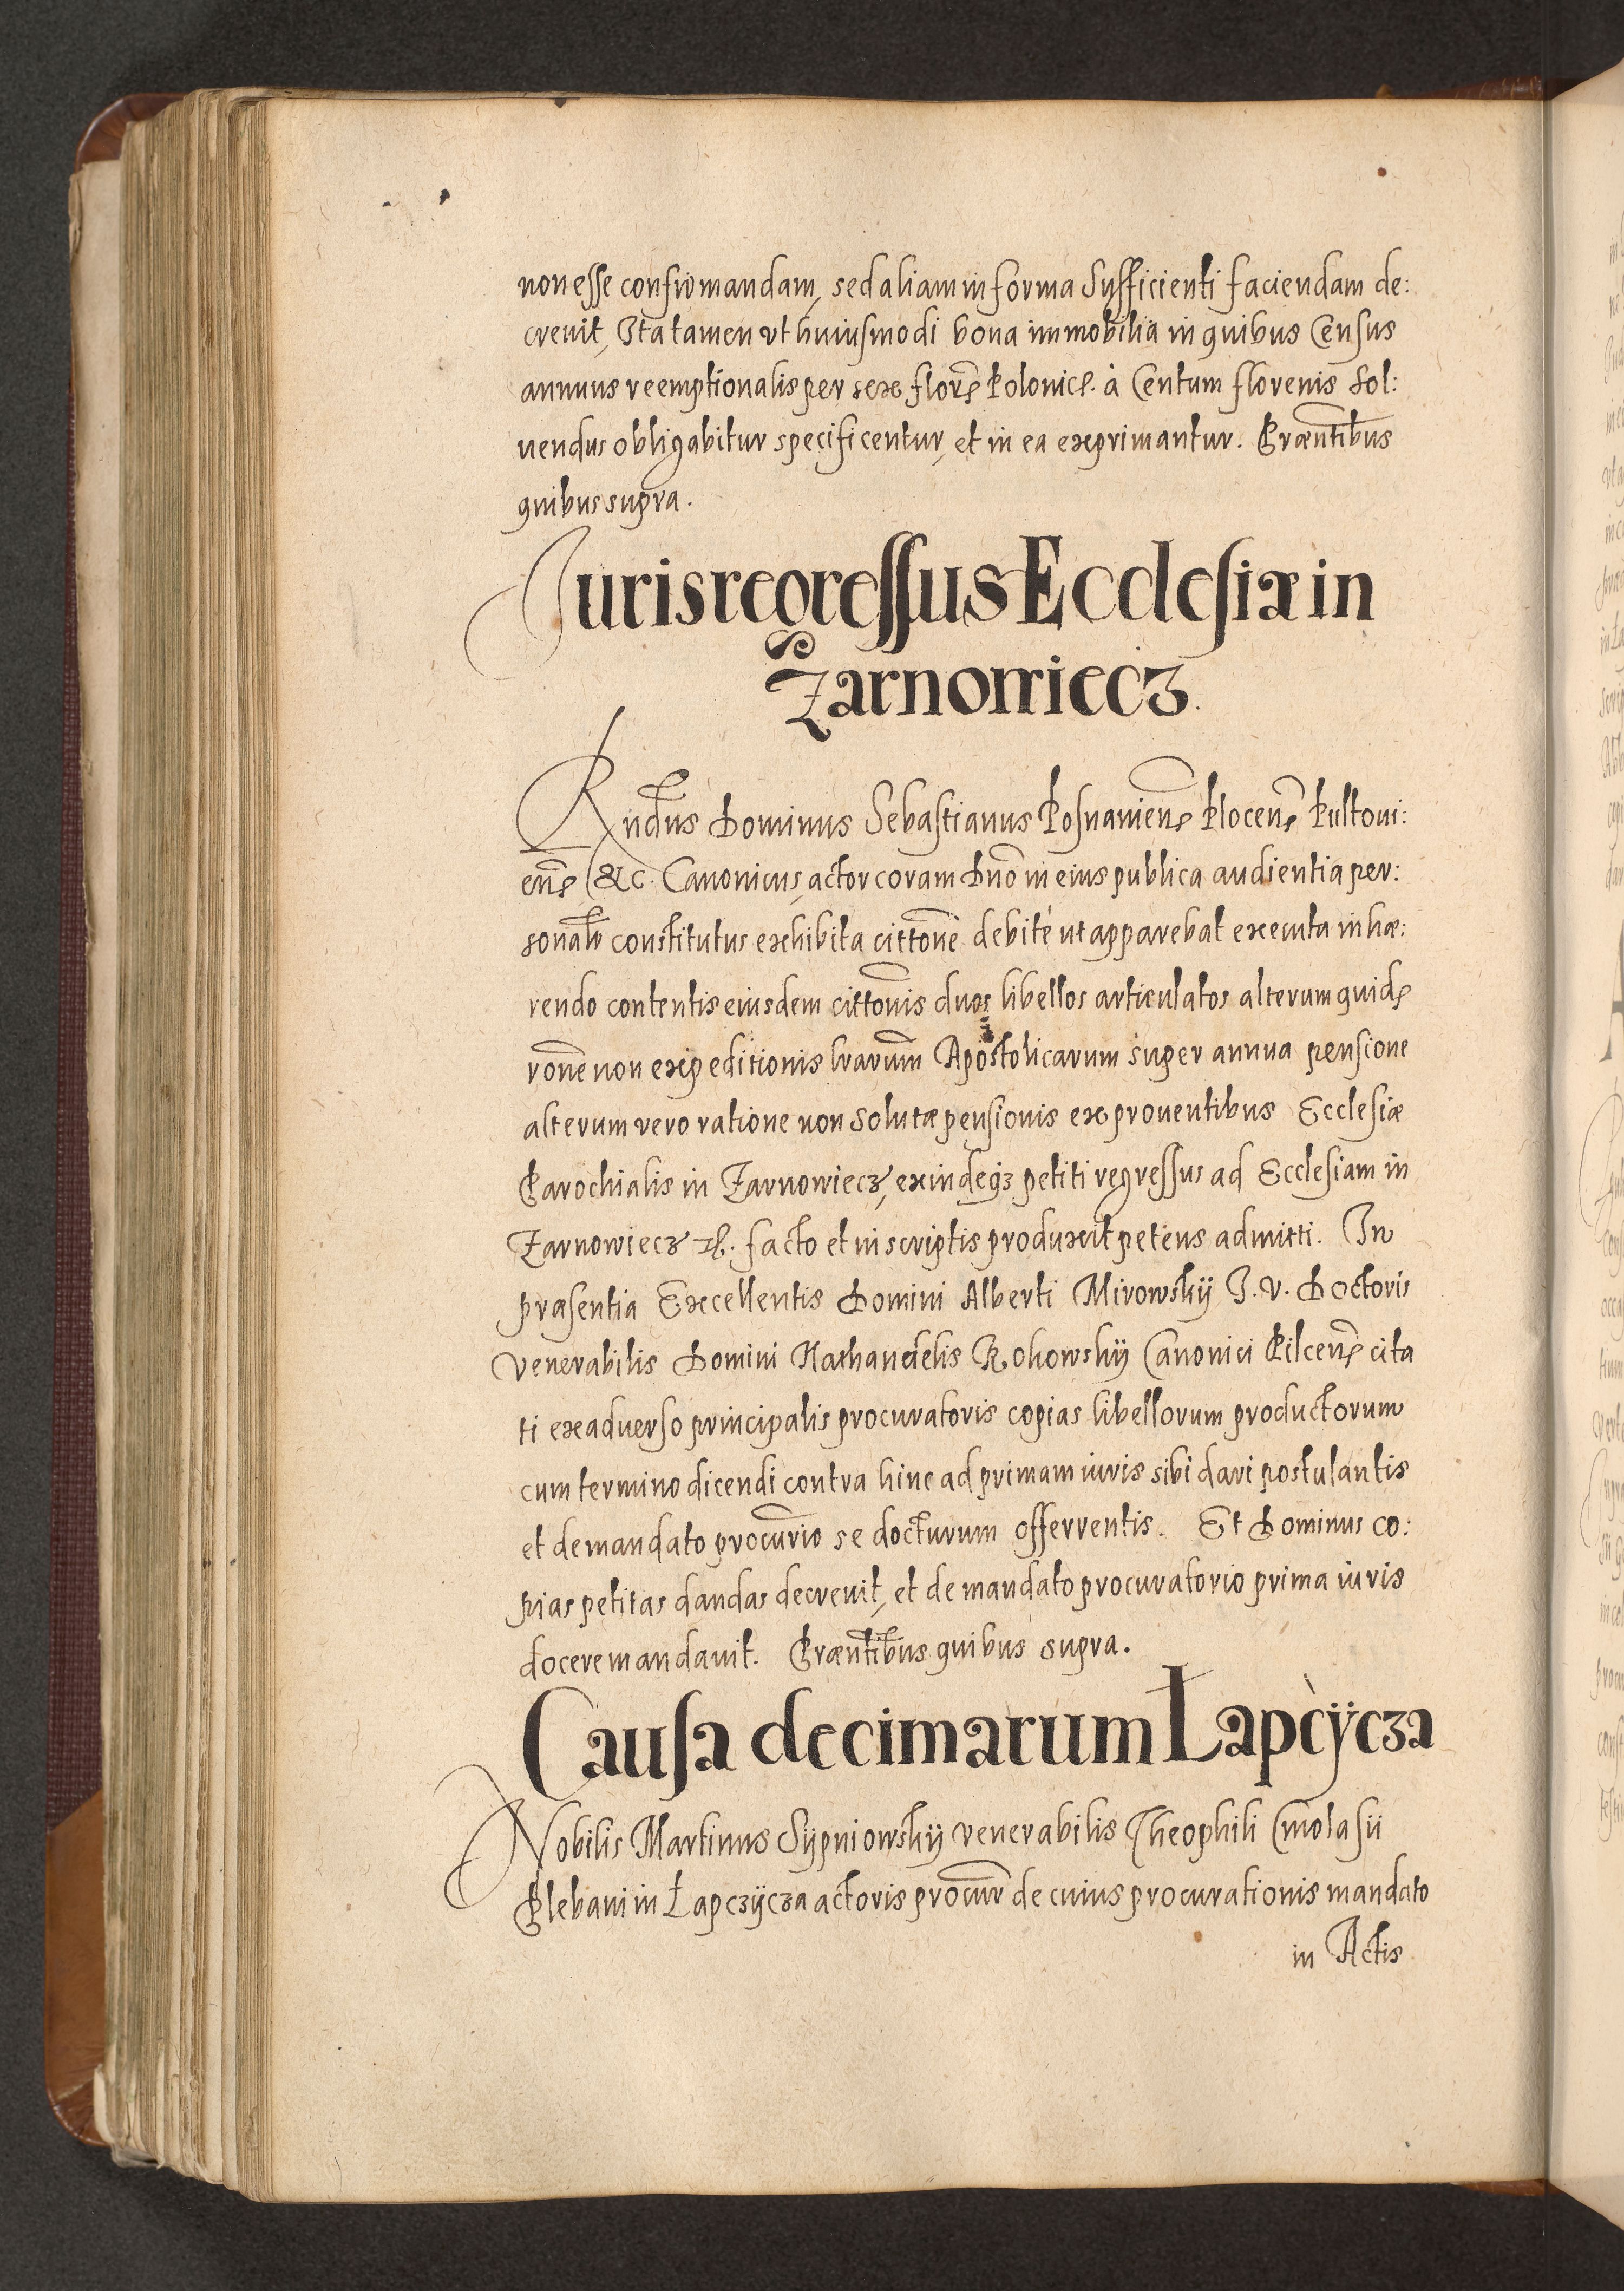 non esse confirmandam, sed aliam in forma Sufficienti faciendam de:
creuit, Ita tamen vt huiusmodi bona immobilia in quibus Census
annuus reemptionalis per sex floreñ Polonicę. à Centum florenis Sol:
uendus obligabitur specificentur, et in ea exprimantur. Præntibus
quibus supra.
Iuris regressus Ecclesiæ in
Żarnowiecz.
Rndus Dominus Sebastianus Posnanieñ Ploceñ Pultoui:
eñ &c. Canonicus, actor coram Dno in eius publica audientia per:
sonalr constitutus exhibita cittone debitè ut apparebat executa inhæ:
rendo contentis eiusdem cittonis duos libellos articulatos alterum quidę
rone non expeditionis lrarum Apostolicarum super annua pensione
alterum vero ratione non Solutæ pensionis ex prouentibus Ecclesiæ
Parochialis in Żarnowiecz, exindeqz petiti regressus ad Ecclesiam in
Żarnowiecz facto et in scriptis produxit petens admitti. In
præsentia Excellentis Domini Alberti Mirowskÿ I. V. Doctoris
Venerabilis Domini Nathanaelis Rokowskÿ Canonici Pilceñ cita
ti ex aduerso principalis procuratoris copias libellorum productorum
cum termino dicendi contra hinc ad primam iuris sibi dari postulantis
et de mandato procurio se docturum offerrentis. Et Dominus co:
pias petitas dandas decreuit, et de mandato procuratorio prima iuris
docere mandauit. Præntibus quibus supra.
Causa decimarum Lapcÿcza
Nobilis Martinus Sÿpniowskÿ venerabilis Theophili Smolasii
Plebani in Łapczÿcza actoris procur de cuius procurationis mandato
in Actis